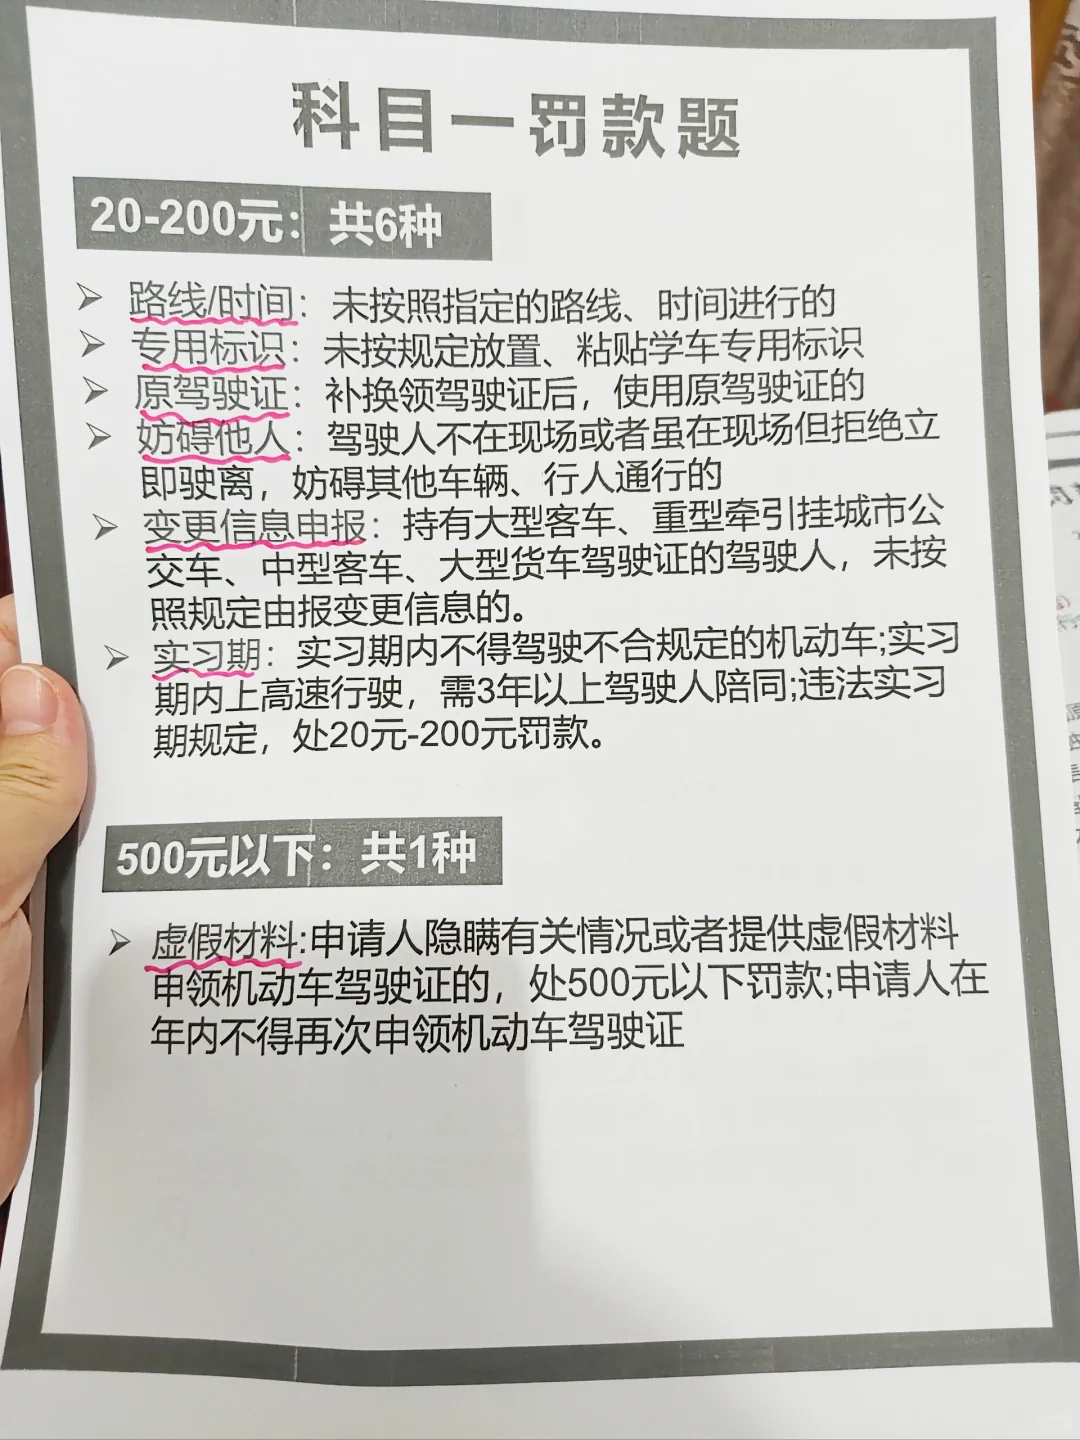 科目一罚款题
20-200元：共6种
路线/时间：未按照指定的路线、时间进行的
专用标识：未按规定放置、粘贴学车专用标识
原驾驶证：补换领驾驶证后，使用原驾驶证的
妨碍他人：驾驶人不在现场或者虽在现场但拒绝立
即驶离，妨碍其他车辆、行人通行的
变更信息申报：持有大型客车、重型牵引挂城市公
交车、中型客车、大型货车驾驶证的驾驶人，未按
照规定由报变更信息的。
实习期：实习期内不得驾驶不合规定的机动车;实习
期内上高速行驶，需3年以上驾驶人陪同;违法实习
期规定，处20元-200元罚款。
500元以下：共1种
虚假材料:申请人隐瞒有关情况或者提供虚假材料
申领机动车驾驶证的，处500元以下罚款;申请人在
年内不得再次申领机动车驾驶证